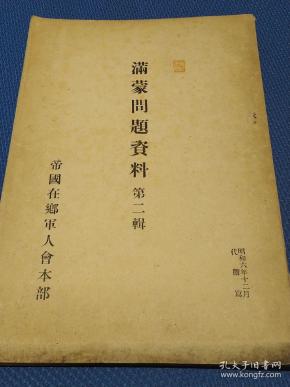 満蒙問題資料 第二輯
昭和六年十二月
代謄寫
帝國在鄉軍人會本部
孔夫子旧书网